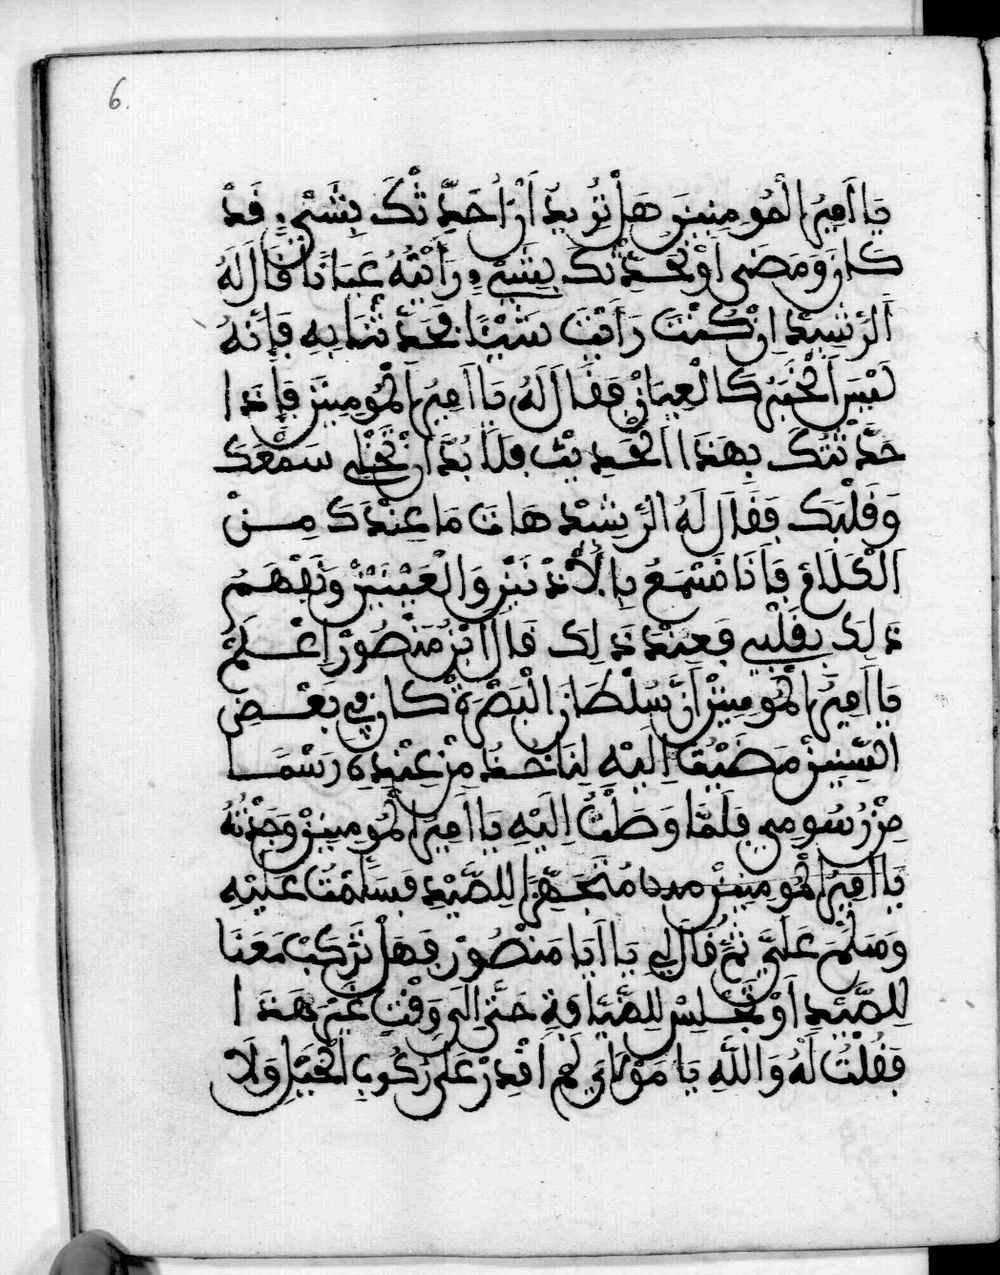 6.
يَا أَمِيرَ الْمُومِنِينَ هَلْ تُرِيدُ أَنْ أُحَدِّثْكَ بِشَيْءٍ قَدْ
كَانَ وَمَضَى أَوْ نُحَدِّثْكَ بِشَيْءٍ رَأَيْتُهُ عِيَانًا فَالَ لَهُ
الرَّشِيدُ إِنْ كُنْتَ رَأَيْتَ شَيْئًا فَحَدِّثْنَا بِهِ فَإِنَّهُ
لَيْسَ الْخَبَرُ كَالْعِيَانِ فَقَالَ لَهُ يَا أَمِيرَ الْمُومِنِينَ فَإِذَا
حَدَّثْتُكَ بِهَذَا الْحَدِيثِ فَلَا بُدَّ أَنْ تُخْلِي سَمْعَكَ
وَقَلْبَكَ فَقَالَ لَهُ الرَّشِيدُ هَاتِ مَا عِنْدَكَ مِنْ
الْكَلَامِ فَأَنَا نَسْمَعُ بِالْأُذْنَيْنِ وَالْعَيْنَيْنِ وَنَفْهَمُ
ذَلِكَ بِقَلْبِي فَعِنْدَ ذَلِكَ قَالَ ابْنُ مَنْصُورْ اِعْلَمْ
يَا أَمِيرَ الْمُومِنِينَ أَنَّ سُلْطَانَ الْبَصْرَةْ كَانَ فِي بَعْضِ
السِّنِينْ مَضَيْتُ إِلَيْهِ لِنَاخُذَ مِنْ عِنْدِهِ رَسْمًا
مِنْ رُسُومِي فَلَمَّا وَصَلْتُ إِلَيْهِ يَا أَمِيرَ الْمُومِنِينْ وَجَدْتُهُ
يَا أَمِيرَ الْمُومِنِينْ مُتَجَهِّزًا لِلصَّيْدِ فَسَلَّمْتُ عَلَيْهِ
وَسَلَّمَ عَلَيَّ ثُمَّ قَالَ لِي يَا أَبَا مَنْصُورْ فَهَلْ تَرْكَبْ مَعَنَا
لِلصَّيْدِ أَوْ تَجْلِسْ لِلضِّيَافَةِ حَتَّى إِلَى وَقْتِ غَيْرِ هَذَا
فَقُلْتُ لَهُ وَاللَّهِ يَا مَوْلَايَ لَمْ أَقْدِرْ عَلَى رُكُوبِ الْخَيْلِ وَلَا